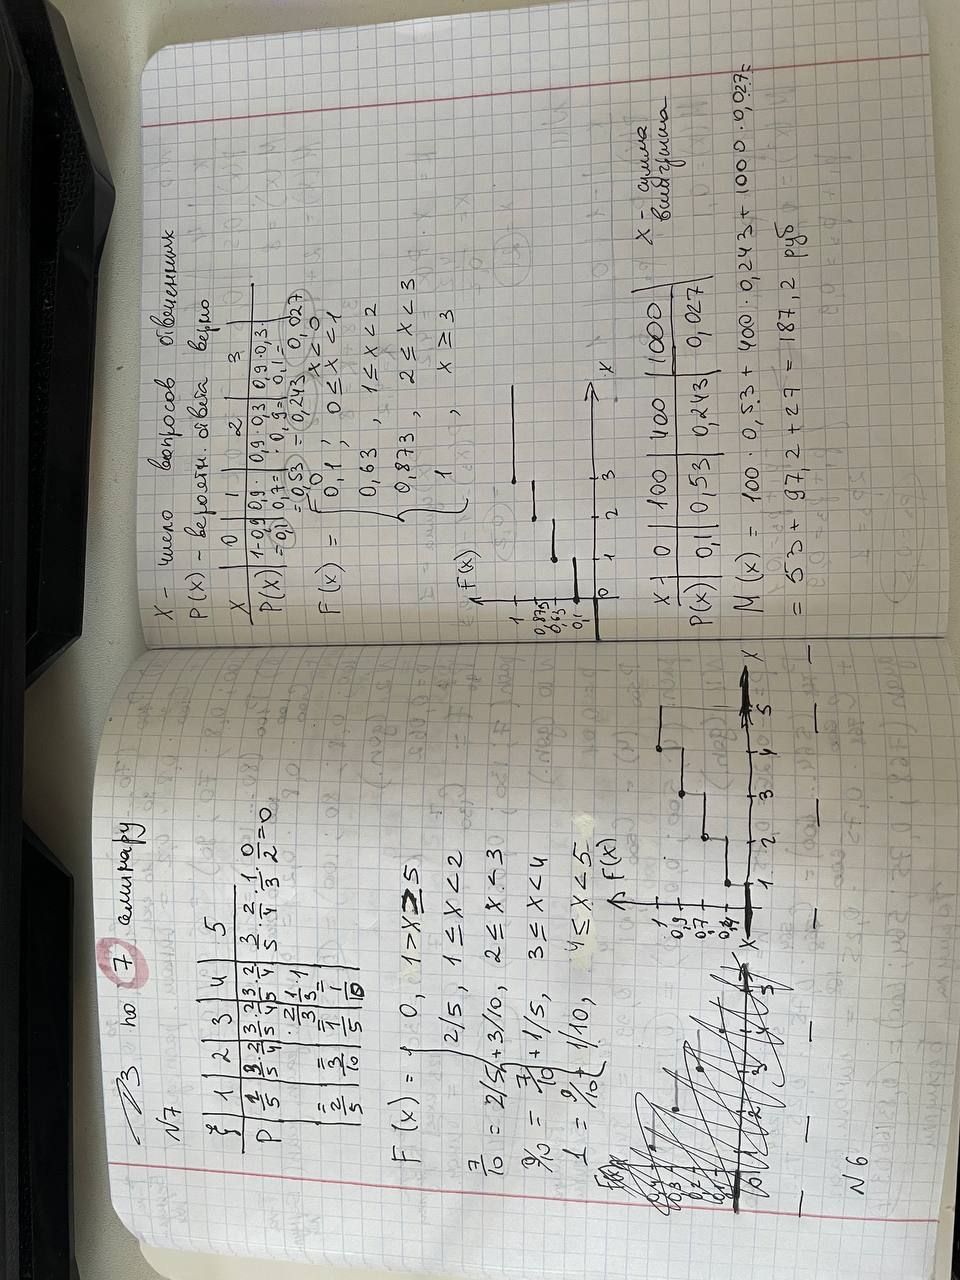 ДЗ по 7 семинару
N7
ξ | 1 | 2 | 3 | 4 | 5
P | 2/5 | 3/5 · 2/4 | 3/5 · 2/4 · 2/3 | 3/5 · 2/4 · 1/3 · 1 | 3/5 · 2/4 · 1/3 · 0/2 = 0
= 2/5 | = 3/10 | = 1/5 | = 1/10
F(x) = { 0, 1 > x ≥ 5
2/5, 1 ≤ x < 2
7/10 = 2/5 + 3/10, 2 ≤ x < 3
9/10 = 7/10 + 1/5, 3 ≤ x < 4
1 = 9/10 + 1/10, 4 ≤ x < 5
F(x)
1
0,9
0,7
0,4
x 1 2 3 4 5 x
N6
X - число вопросов отвеченных
P(X) - вероятн. ответа верно
X | 0 | 1 | 2 | 3
P(X) | 1-0,9 = 0,1 | 0,9 · 0,7 = = 0,53 | 0,9 · 0,3 · 0,9 = = 0,243 | 0,9 · 0,3 · 0,1 = 0,027
F(x) = { 0, x < 0
0,1, 0 ≤ x < 1
0,63, 1 ≤ x < 2
0,873, 2 ≤ x < 3
1, x ≥ 3
F(x)
1
0,873
0,63
0,1
0 1 2 3 x
X | 0 | 100 | 400 | 1000
P(X) | 0,1 | 0,53 | 0,243 | 0,027
X - сумма
выигрыша
M(x) = 100 · 0,53 + 400 · 0,243 + 1000 · 0,027 =
= 53 + 97,2 + 27 = 187,2 руб